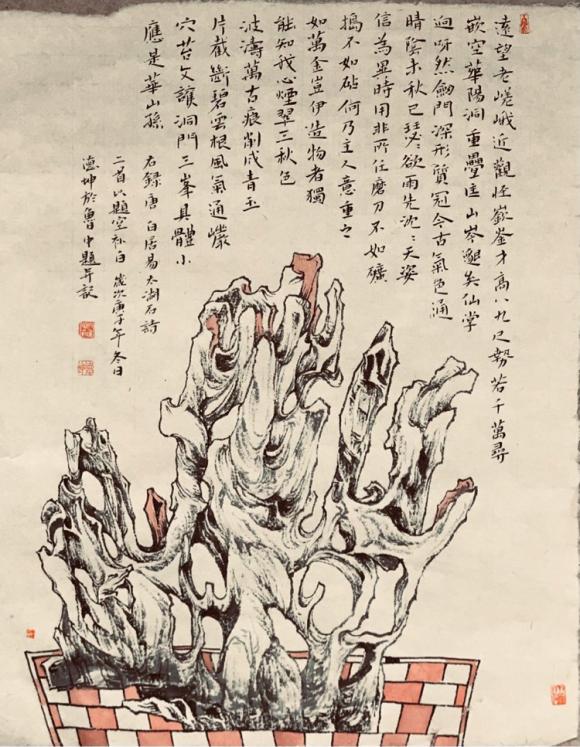 遠望老嵯峨近觀怪嶔崟才高八九尺勢若千萬尋
嵌空華陽洞重疊匡山岑邈矣仙掌
迥呀然劍門深形質冠今古氣色通
晴陰未秋已瑟〻欲雨先沈〻天姿
信為異時用非所任磨刀不如礦
搗不如砧何乃主人意重之
如萬金豈伊造物者獨
能知我心煙翠三秋色
波濤萬古痕削成青玉
片截斷碧雲根風氣通巖
穴苔文護洞門三峯具體小
應是華山孫
右錄唐白居易太湖石詩
二首以題空補白 歲次庚子年冬日
德坤於魯中題并記